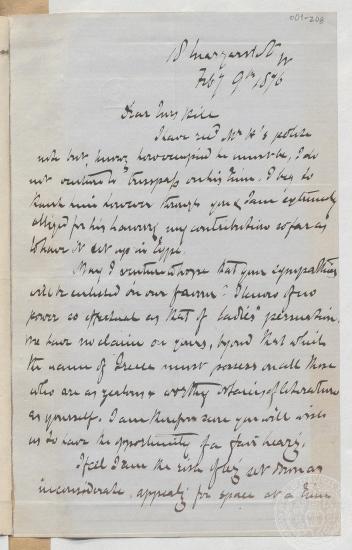 001-208
18 Margaret St W
Feby 9th 1876
Dear Mrs Hill
I have recd Mr H's polite
note but, knowg how occupied he must be, I do
not venture to trespass on his time. I beg to
thank him however through you & I am extremely
obliged for his honourg my contribution so far as
to have it set up in type.
May I venture to hope that your sympathies
will be enlisted in our favour? I know of no
power so effectual as that of Ladies' persuasion.
We have no claim on yours, beyond that which
the name of Greece must possess on all those
who are as zealous & worthy votaries of literature
as yourself. I am therefore sure you will wish
us to have the opportunity of a fair hearg.
I feel I am the risk of beg set down as
inconsiderate, appealg for space at a time